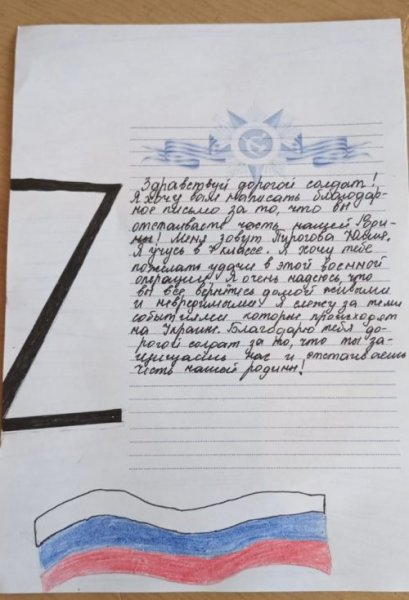 Здравствуй дорогой солдат!
Я хочу вам написать благодар-
ное письмо за то, что вы
отстаиваете честь нашей Роди-
ны! Меня зовут Пирогова Юлия.
Я учусь в классе. Я хочу тебе
пожелать удачи в этой военной
операции. Я очень надеюсь, что
вы все вернётесь домой живыми
и невредимыми. Я слежу за теми
событиями которые происходят
на Украине. Благодарю тебя до-
рогой солдат за то, что ты за-
щищаешь нас и отстаиваешь
честь нашей родины!
Z